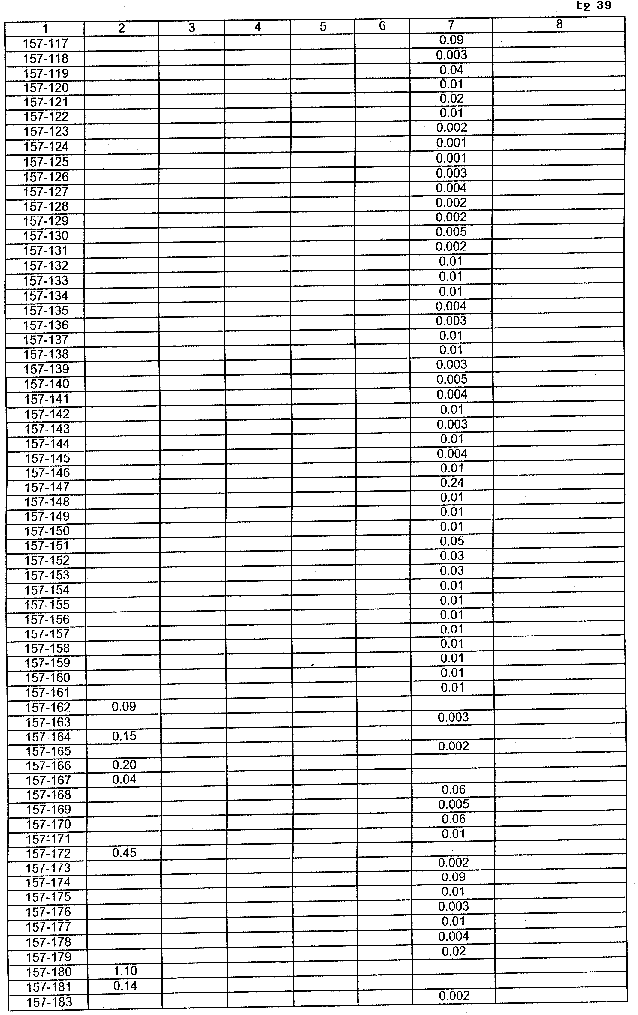 եջ 39
1 2 3 4 5 6 7 8
157-117 0.09
157-118 0.003
157-119 0.04
157-120 0.01
157-121 0.02
157-122 0.01
157-123 0.002
157-124 0.001
157-125 0.001
157-126 0.003
157-127 0.004
157-128 0.002
157-129 0.002
157-130 0.005
157-131 0.002
157-132 0.01
157-133 0.01
157-134 0.01
157-135 0.004
157-136 0.003
157-137 0.01
157-138 0.01
157-139 0.003
157-140 0.005
157-141 0.004
157-142 0.01
157-143 0.003
157-144 0.01
157-145 0.004
157-146 0.01
157-147 0.24
157-148 0.01
157-149 0.01
157-150 0.01
157-151 0.05
157-152 0.03
157-153 0.03
157-154 0.01
157-155 0.01
157-156 0.01
157-157 0.01
157-158 0.01
157-159 0.01
157-160 0.01
157-161 0.01
157-162 0.09
157-163 0.003
157-164 0.15
157-165 0.002
157-166 0.20
157-167 0.04
157-168 0.06
157-169 0.005
157-170 0.06
157-171 0.01
157-172 0.45
157-173 0.002
157-174 0.09
157-175 0.01
157-176 0.003
157-177 0.01
157-178 0.004
157-179 0.02
157-180 1.10
157-181 0.14
157-183 0.002